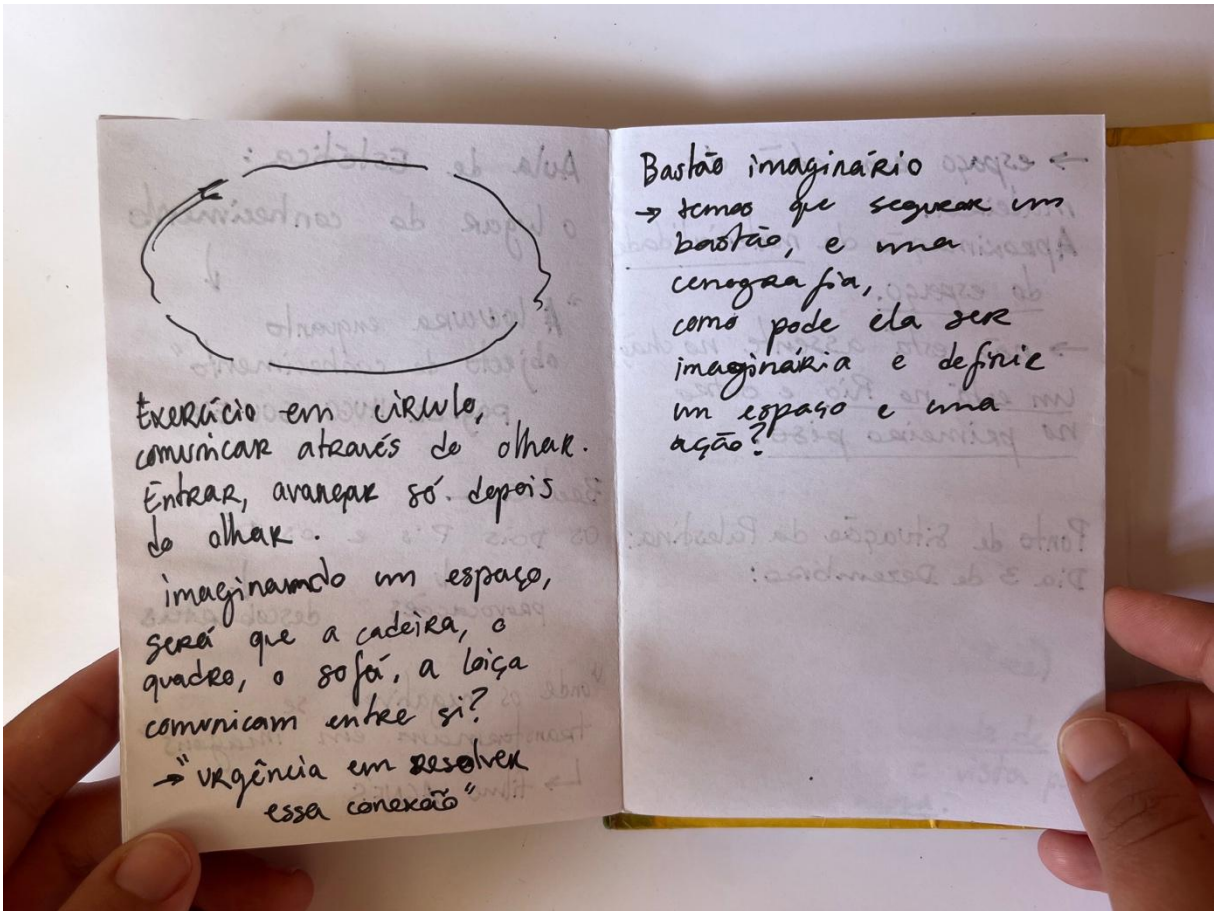 Exercício em círculo,
comunicar através do olhar.
Entrar, avançar só depois
do olhar.
imaginando um espaço,
será que a cadeira, o
quadro, o sofá, a loiça
comunicam entre si?
→ "urgência em resolver
essa conexão"
Bastão imaginário
→ temos que segurar um
bastão, e uma
cenografia,
como pode ela ser
imaginária e definir
um espaço e uma
ação?